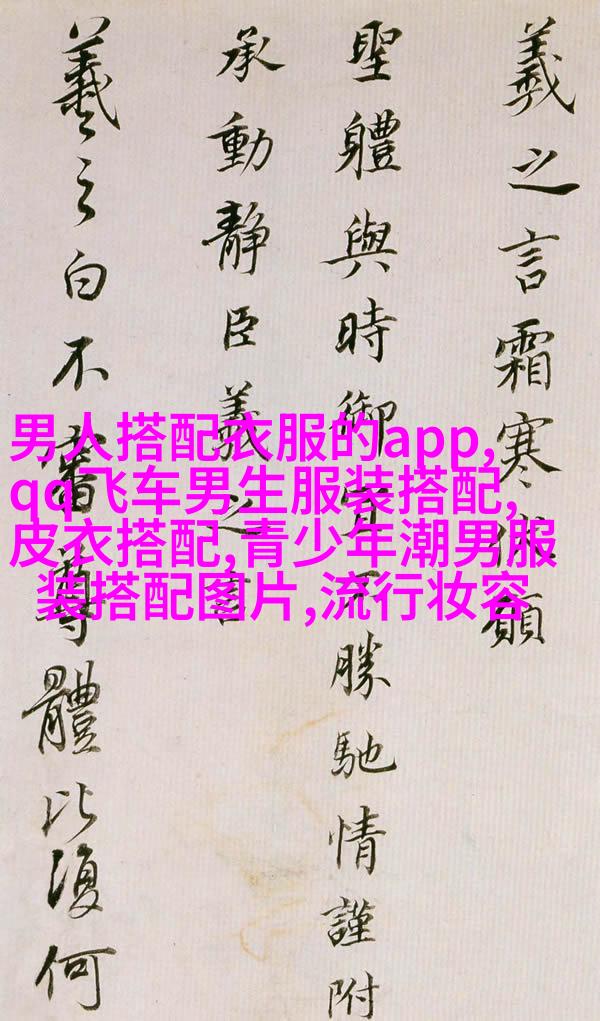 羲之言霜寒伏願
聖體與時御宜不勝馳情謹附
承動靜臣羲之言
羲之白不審尊體比復何
男人搭配衣服的app,
qq飞车男生服装搭配,
皮衣搭配,青少年潮男服
装搭配图片,流行妆容